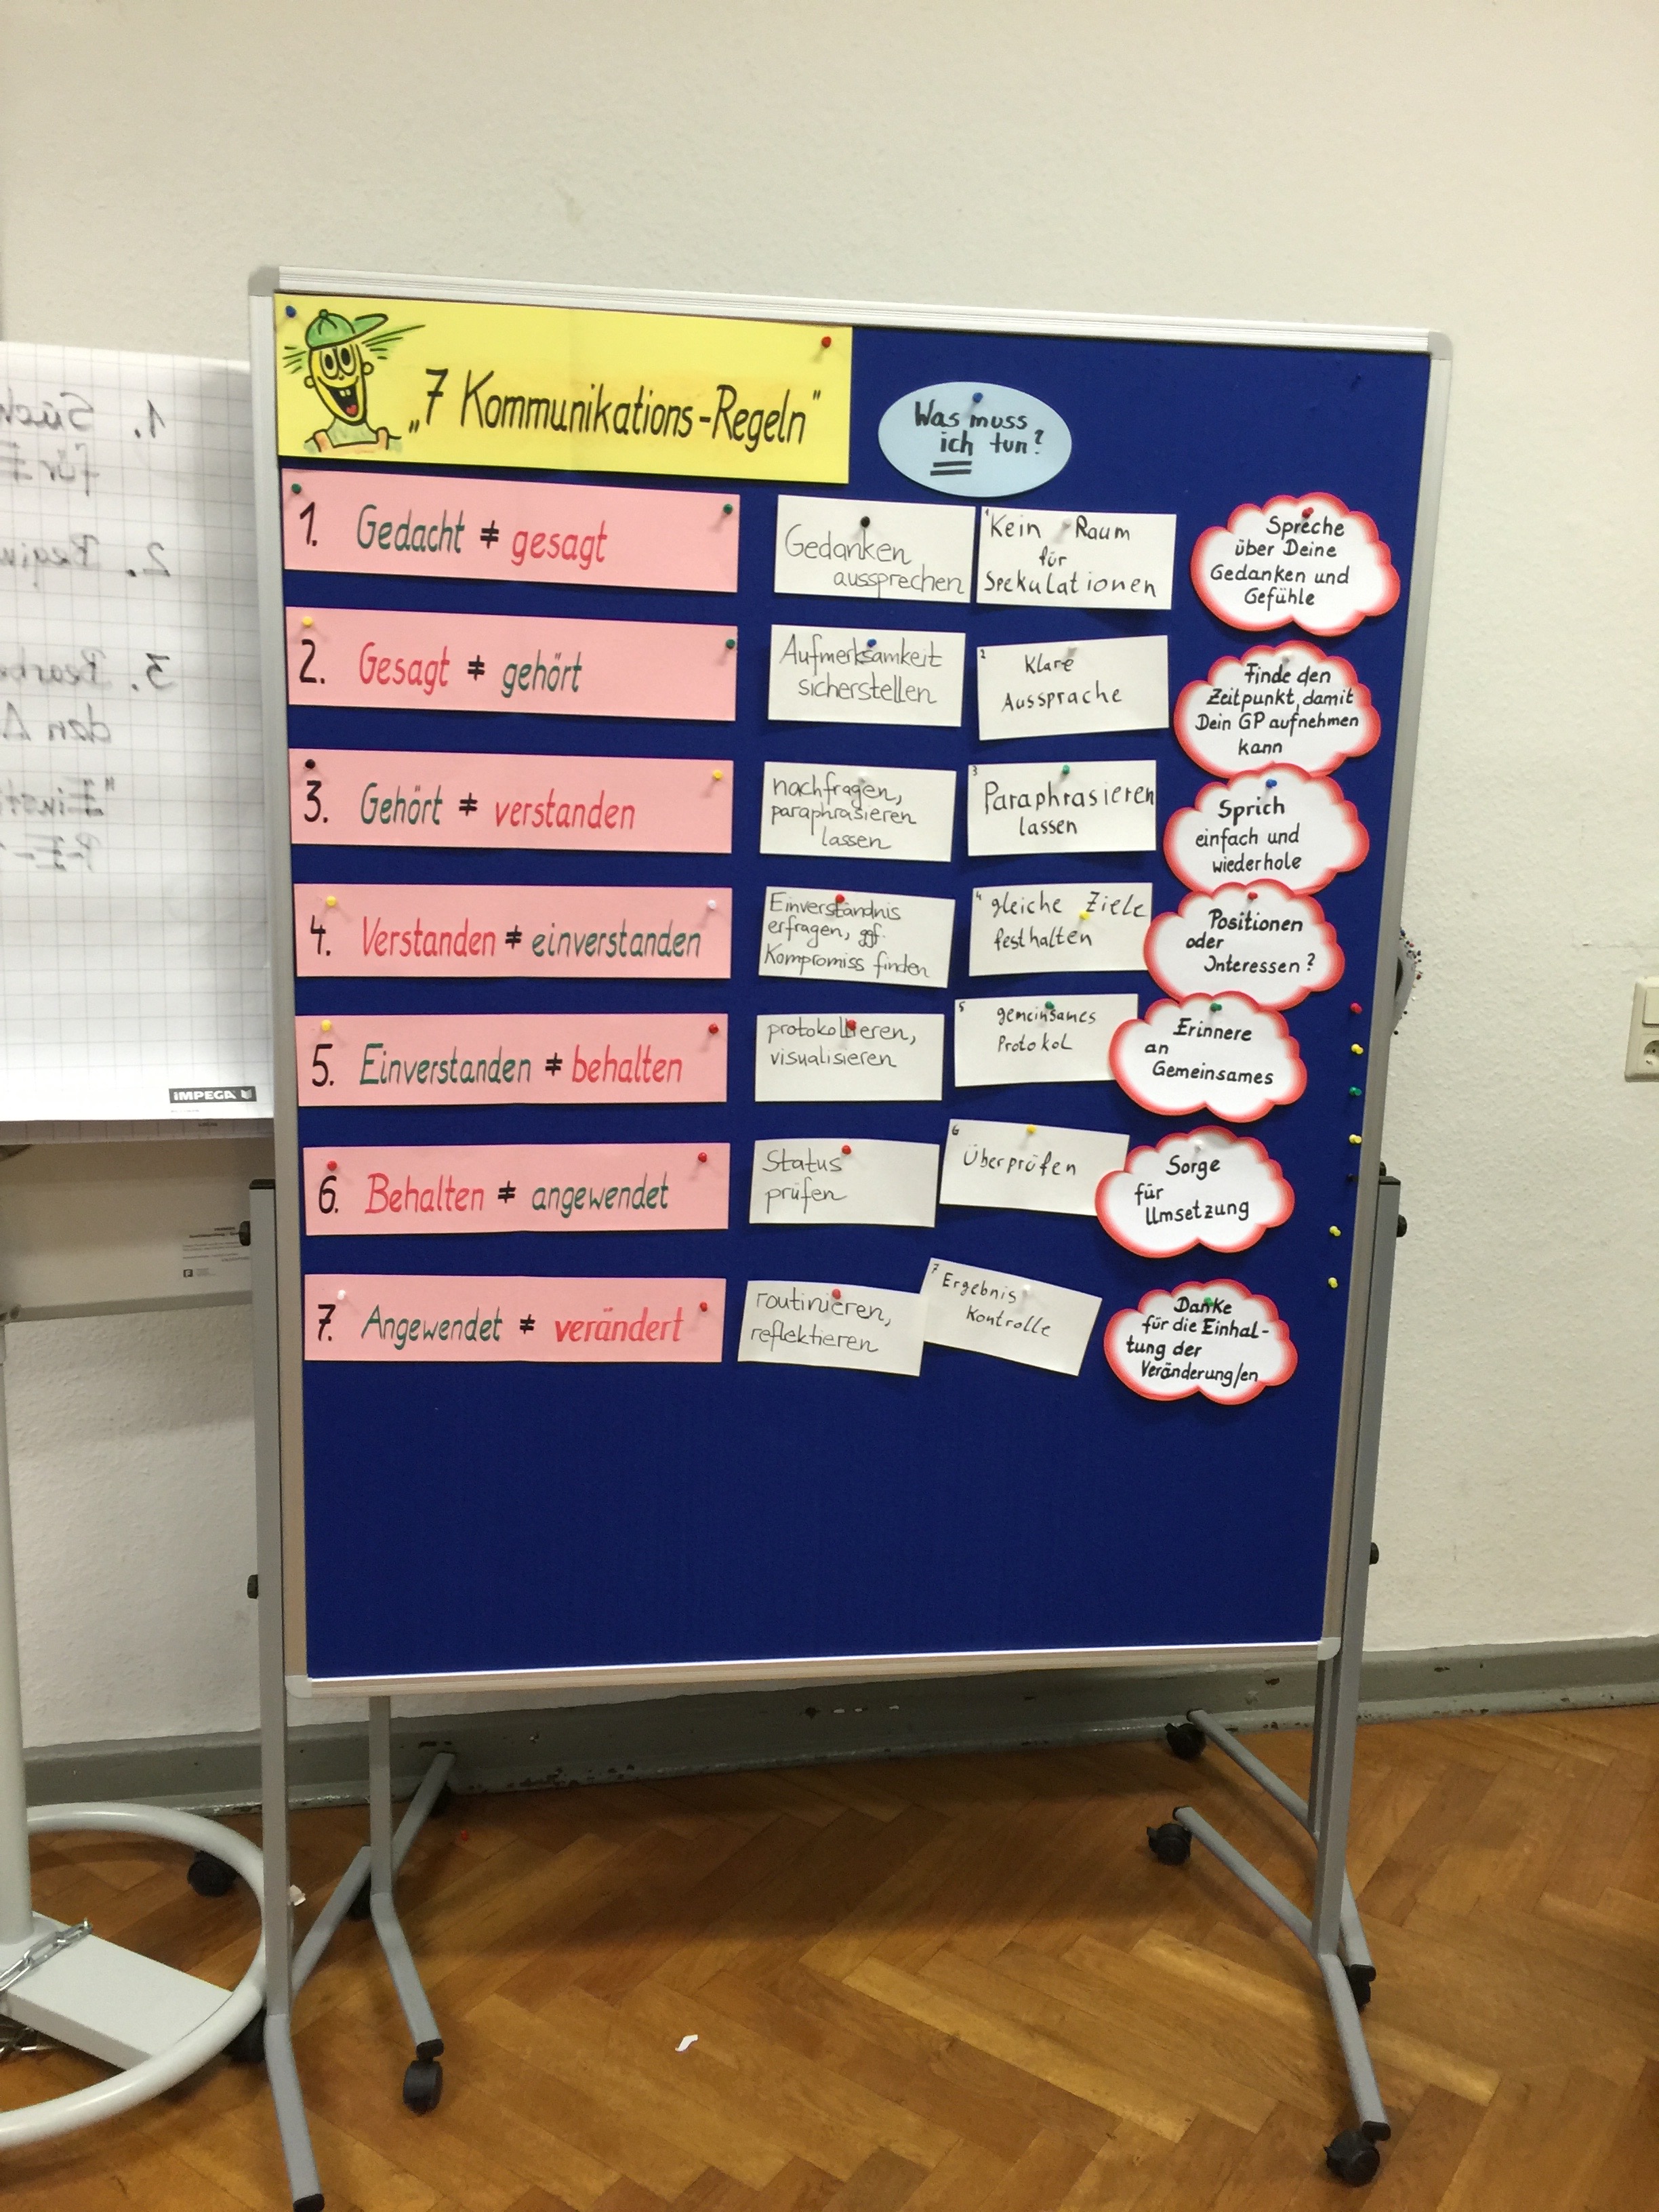 „7 Kommunikations-Regeln"
Was muss
ich tun?
1. Gedacht ≠ gesagt
Gedanken
aussprechen
1 Kein Raum
für
Spekulationen
Spreche
über Deine
Gedanken und
Gefühle
2. Gesagt ≠ gehört
Aufmerksamkeit
sicherstellen
2 Klare
Aussprache
Finde den
Zeitpunkt, damit
Dein GP aufnehmen
kann
3. Gehört ≠ verstanden
nachfragen,
paraphrasieren
lassen
3 Paraphrasieren
lassen
Sprich
einfach und
wiederhole
4. Verstanden ≠ einverstanden
Einverständnis
erfragen, ggf.
Kompromiss finden
4 gleiche Ziele
festhalten
Positionen
oder
Interessen?
5. Einverstanden ≠ behalten
protokollieren,
visualisieren
5 gemeinsames
Protokol
Erinnere
an
Gemeinsames
6. Behalten ≠ angewendet
Status
prüfen
6 Überprüfen
Sorge
für
Umsetzung
7. Angewendet ≠ verändert
routinieren,
reflektieren
7 Ergebnis
Kontrolle
Danke
für die Einhal-
tung der
Veränderung/en
1.
für
2.
3.
den
IMPEGA